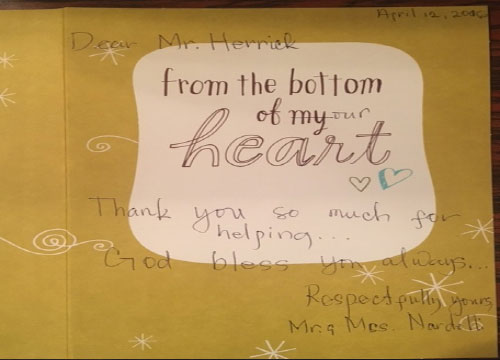 April 12, 2016
Dear Mr. Herrick
from the bottom
of my our
heart
Thank you so much for
helping...
God bless you always...
Respectfully yours,
Mr. & Mrs. Nardelli